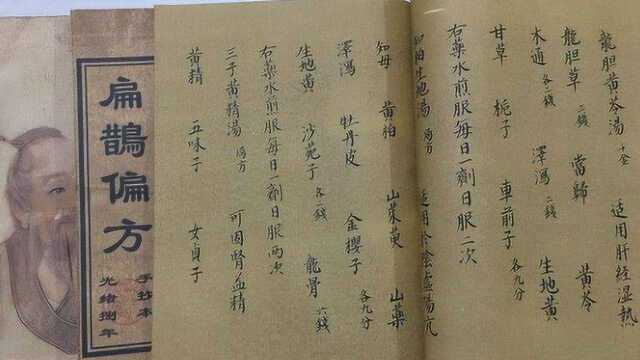 龍胆黄芩湯 十全 适用肝经湿热
龍胆草 二錢 當歸 黄芩
木通 各二錢 澤瀉 二錢 生地黄
甘草 栀子 車前子 各九分
右藥水煎服每日一劑日服二次
知柏生地湯 偏方 适用於陰虚陽亢
知母 黄柏 山茱萸 山藥
澤瀉 牡丹皮 金櫻子 各九分
生地黄 沙苑子 各二錢 龍骨 六錢
右藥水煎服每日一劑日服两次
三子黄精湯 偏方 可固腎益精
黄精 五味子 女貞子
扁鵲偏方
手抄本
光緒捌年